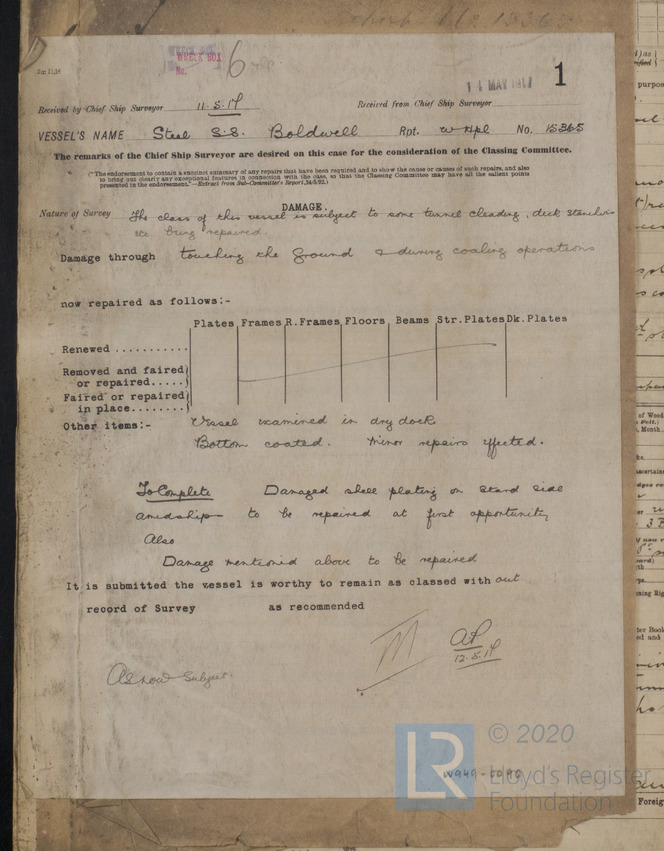 WRECK BOX
No. 6
11.5.17
14 MAY 1917
1
Received by Chief Ship Surveyor 11.5.17 Received from Chief Ship Surveyor
VESSEL'S NAME Steel S.S. Boldwell Rpt. W Hpl No. 15365
The remarks of the Chief Ship Surveyor are desired on this case for the consideration of the Classing Committee.
("The endorsement to contain a succinct summary of any repairs that have been required and to show the cause or causes of such repairs, and also
to bring out clearly any exceptional features in connection with the case, so that the Classing Committee may have all the salient points
presented in the endorsement."—Extract from Sub-Committee's Report, 24/5/92.)
DAMAGE.
Nature of Survey The class of this vessel is subject to some tunnel cleading, deck stanchions
etc being repaired.
Damage through touching the ground & during coaling operations
now repaired as follows:-
Plates Frames R.Frames Floors Beams Str.Plates Dk.Plates
Renewed ...........
Removed and faired
or repaired.....
Faired or repaired
in place........
Other items:- Vessel examined in dry dock
Bottom coated. Minor repairs effected.
To Complete Damaged shell plating on Starbd side
amidships to be repaired at first opportunity
Also
Damage mentioned above to be repaired
It is submitted the vessel is worthy to remain as classed without
record of Survey as recommended
AP
12.5.17
As now Subject.
W949-0090
LR
© 2020
Lloyd's Register
Foundation